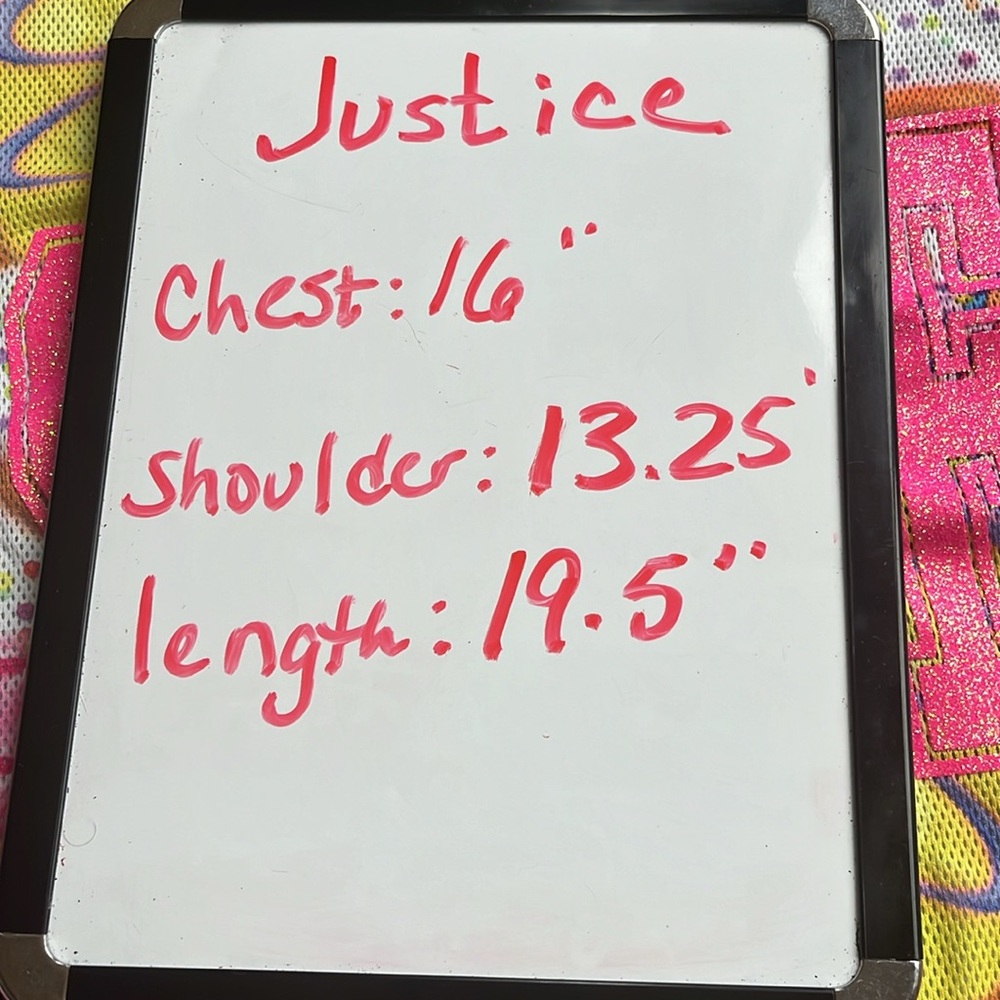 Justice
Chest: 16"
Shoulder: 13.25'
length: 19.5"